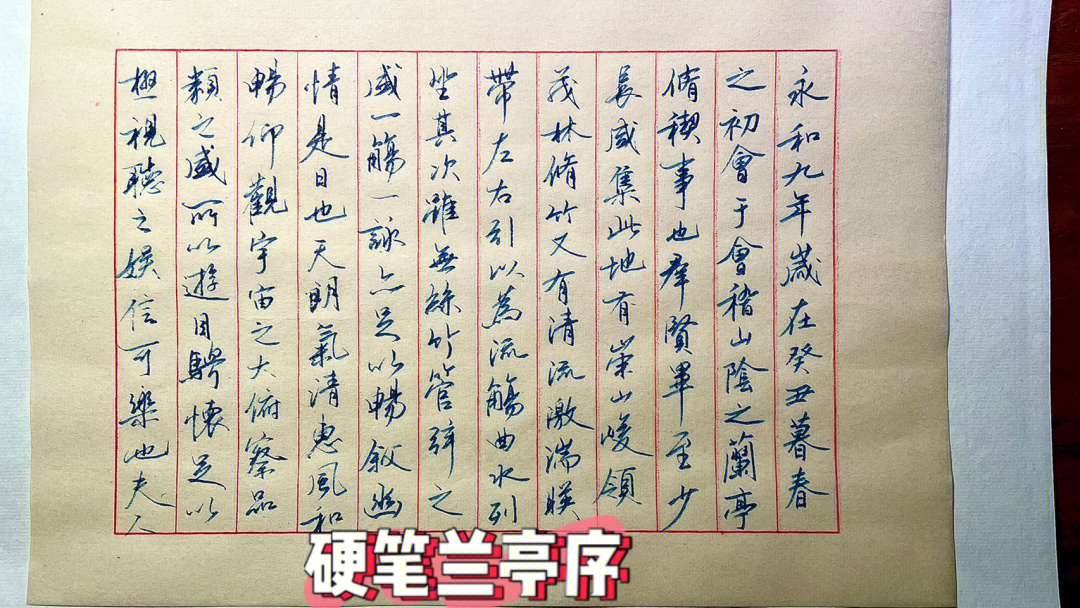 永和九年歲在癸丑暮春
之初會于會稽山陰之蘭亭
脩稧事也羣賢畢至少
長咸集此地有崇山峻領
茂林脩竹又有清流激湍暎
帶左右引以為流觴曲水列
坐其次雖無絲竹管弦之
盛一觴一詠亦足以暢叙幽
情是日也天朗氣清惠風和
暢仰觀宇宙之大俯察品
類之盛所以遊目騁懷足以
極視聽之娛信可樂也夫人
硬笔兰亭序